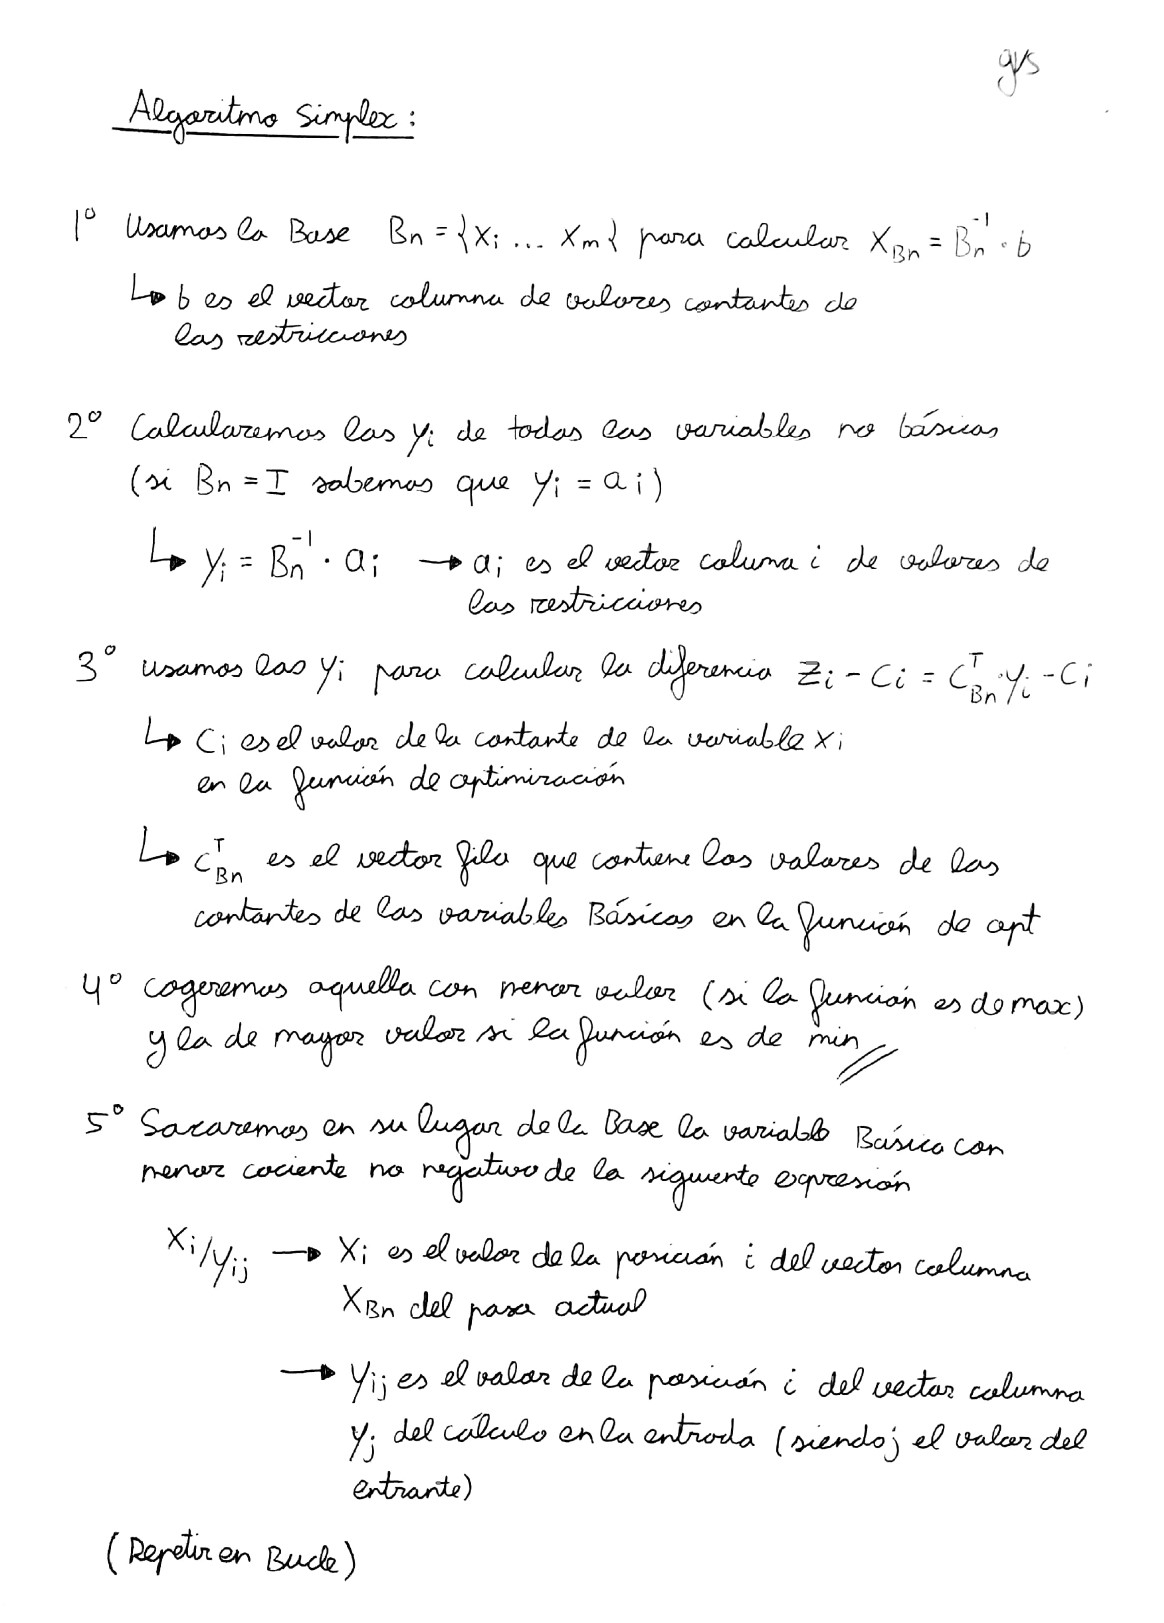 gvs
Algoritmo Simplex:
1º Usamos la Base Bn = {Xi ... Xm} para calcular X_Bn = Bn^-1 · b
↳ b es el vector columna de valores contantes de
las restricciones
2º Calcularemos las yi de todas las variables no básicas
(si Bn = I sabemos que yi = ai)
↳ yi = Bn^-1 · ai → ai es el vector columa i de valores de
las restricciones
3º usamos las yi para calcular la diferencia Zi - Ci = C_Bn^T · yi - Ci
↳ Ci es el valor de la contante de la variable xi
en la función de optimización
↳ C_Bn^T es el vector fila que contiene los valores de las
contantes de las variables Básicas en la función de opt
4º cogeremos aquella con menor valor (si la función es de max)
y la de mayor valor si la función es de min
5º Sacaremos en su lugar de la Base la variable Básica con
menor cociente no negativo de la siguiente expresión
Xi/yij → Xi es el valor de la posición i del vector columna
X_Bn del paso actual
→ yij es el valor de la posición i del vector columna
yj del cálculo en la entrada (siendo j el valor del
entrante)
(Repetir en Bucle)